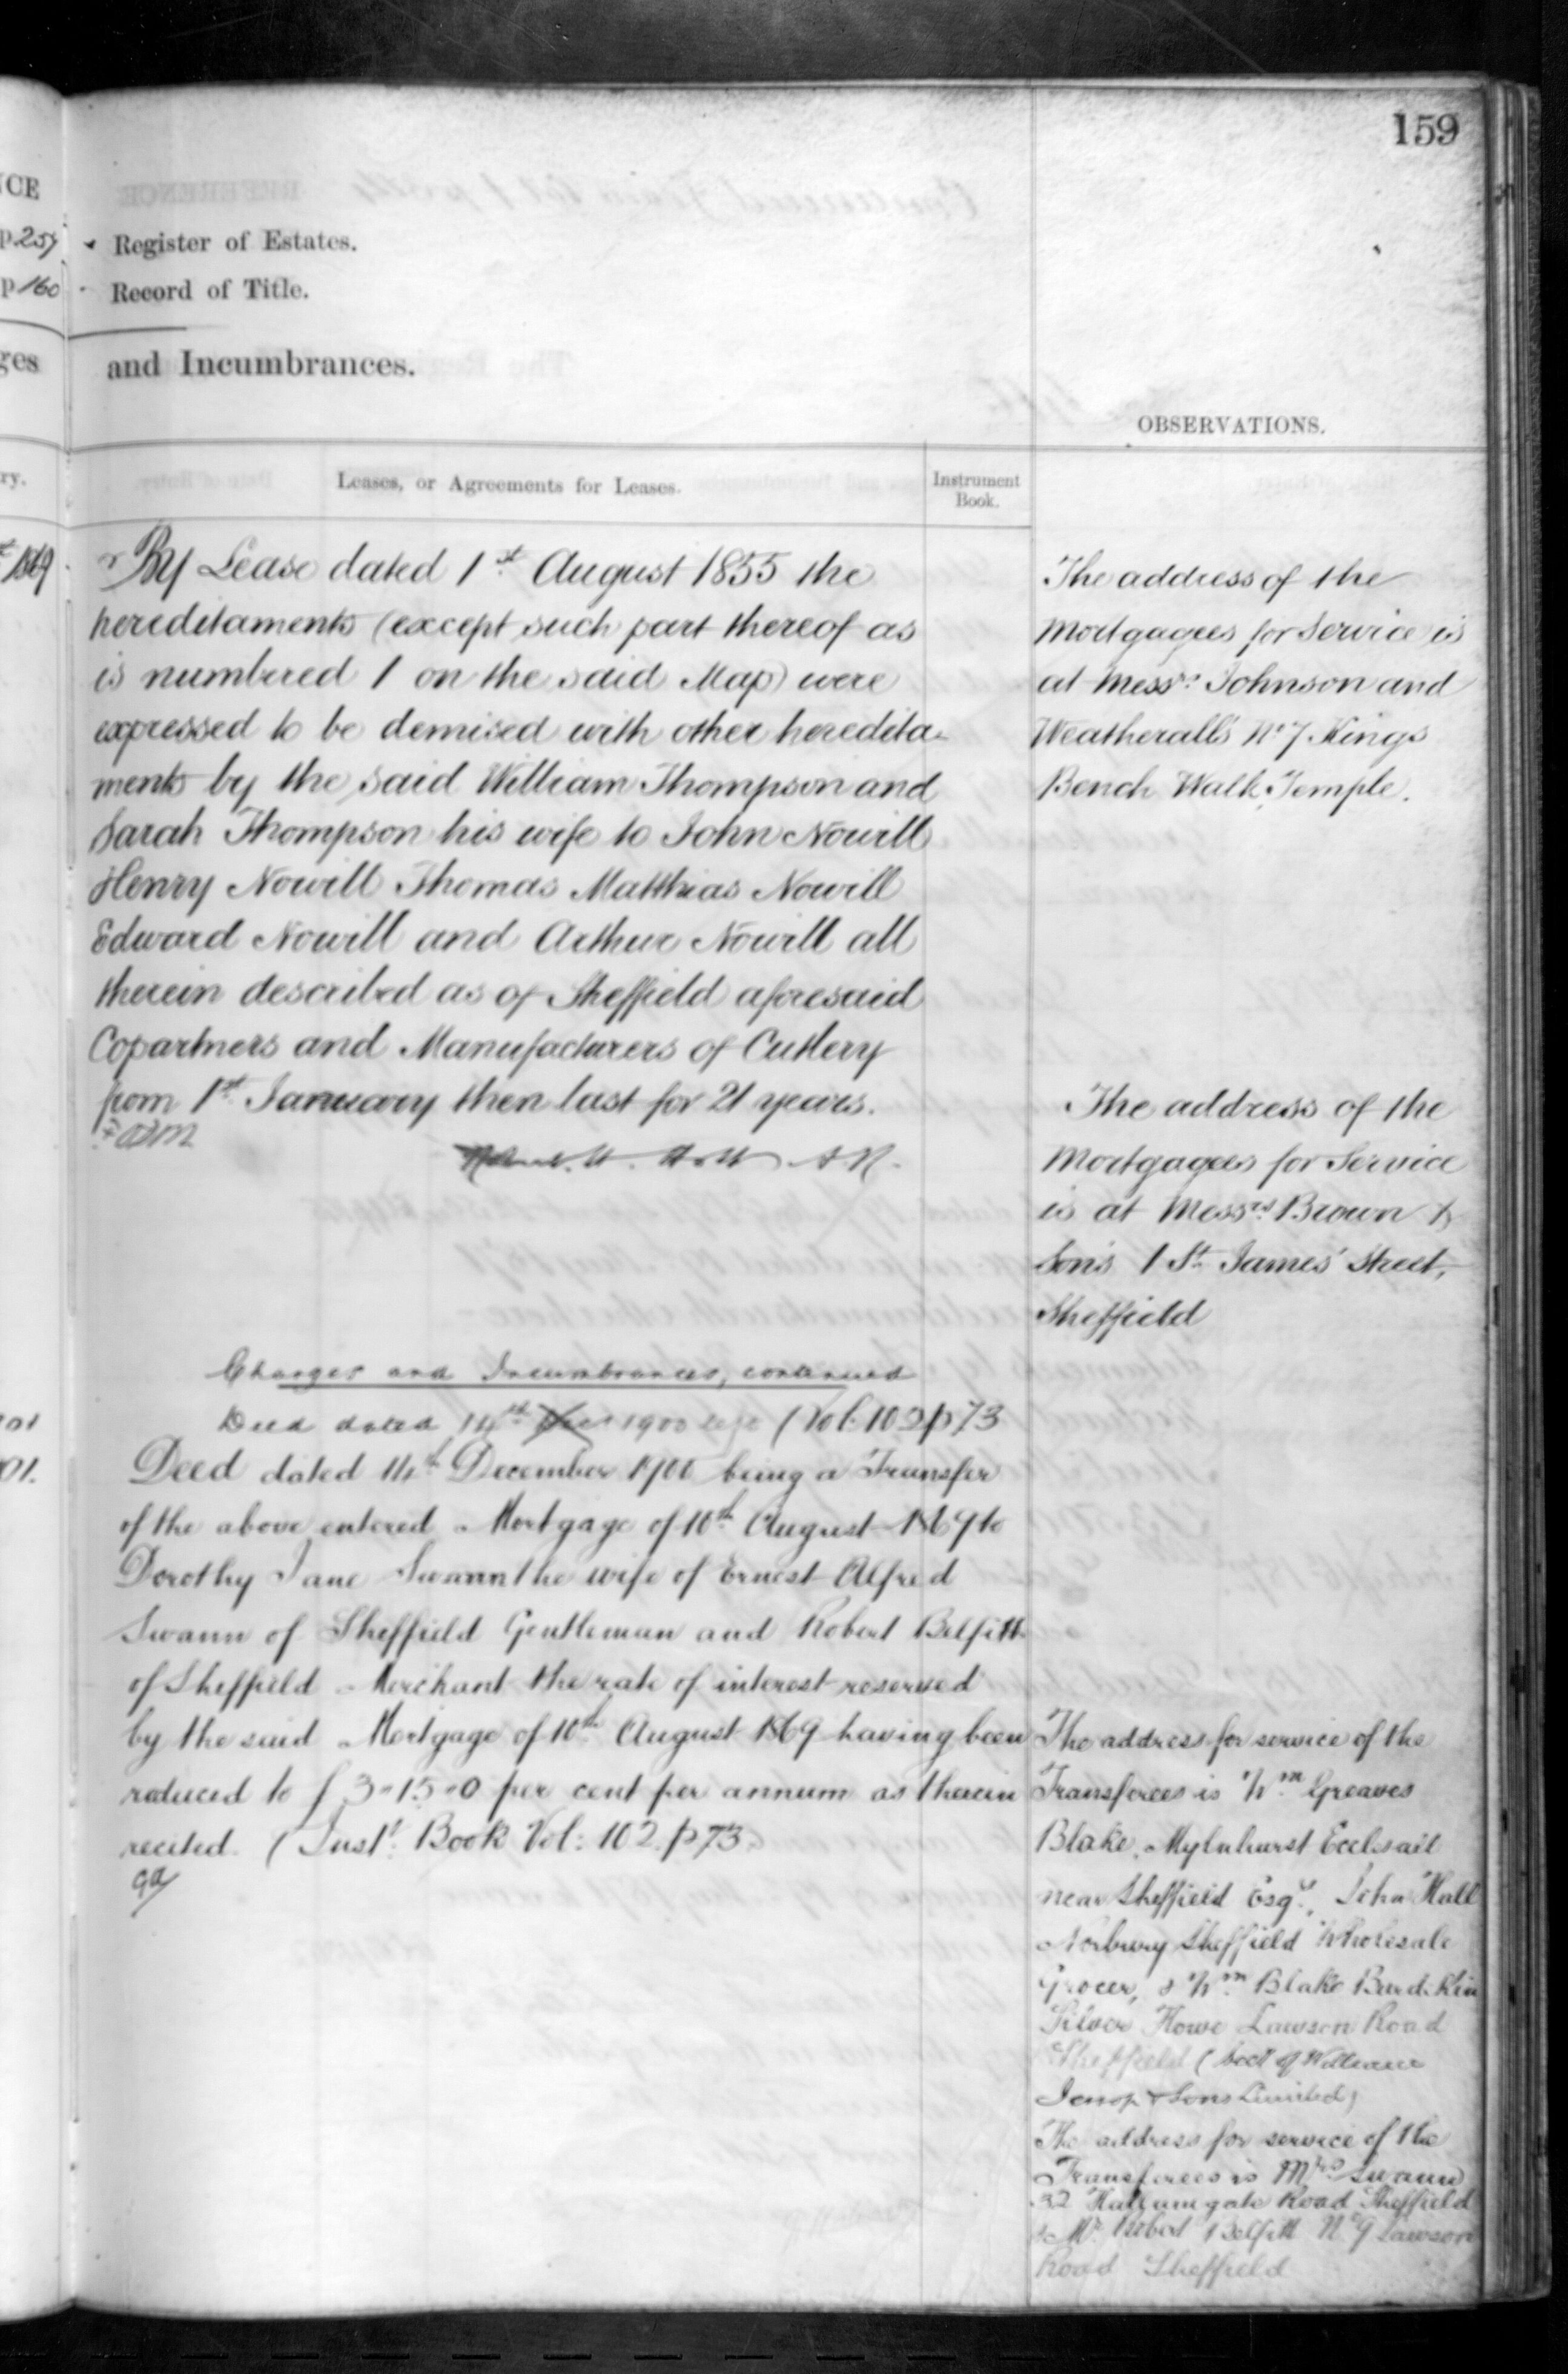 159
CE
p.257 Register of Estates.
p 160 Record of Title.
ges and Incumbrances.
OBSERVATIONS.
ry.
Leases, or Agreements for Leases.
Instrument
Book.
1869
By Lease dated 1st August 1855 the
hereditaments (except such part thereof as
is numbered 1 on the said Map) were
expressed to be demised with other heredita-
ments by the said William Thompson and
Sarah Thompson his wife to John Nowill
Henry Nowill Thomas Matthias Nowill
Edward Nowill and Arthur Nowill all
therein described as of Sheffield aforesaid
Copartners and Manufacturers of Cutlery
from 1st January then last for 21 years.
A.R.
Charges and Incumbrances, continued
Deed dated 14th 1900 (Vol. 102 p 73
01.
Deed dated 14th December 1900 being a Transfer
of the above entered Mortgage of 10th August 1869 to
Dorothy Jane Swann the wife of Ernest Alfred
Swann of Sheffield Gentleman and Robert Belfitt
of Sheffield Merchant the rate of interest reserved
by the said Mortgage of 10th August 1869 having been
reduced to £3-15-0 per cent per annum as therein
recited. (Inst. Book Vol: 102 p 73
The address of the
Mortgagees for Service is
at Messrs Johnson and
Weatherall's No 7 Kings
Bench Walk, Temple.
The address of the
Mortgagees for Service
is at Messrs Brown &
Son's 1 St James' Street,
Sheffield
The address for service of the
Transferees is Wm Greaves
Blake, Mylnhurst Ecclesall
near Sheffield Esqr, John Hall
Norbury Sheffield Wholesale
Grocer, & Wm Blake Burdekin
Silver Howe Lawson Road
Sheffield (Secy of William
Jessop & Sons Limited)
The address for service of the
Transferees is Mrs Swann
32 Hallamgate Road Sheffield
& Mr Robert Belfitt No 9 Lawson
Road Sheffield